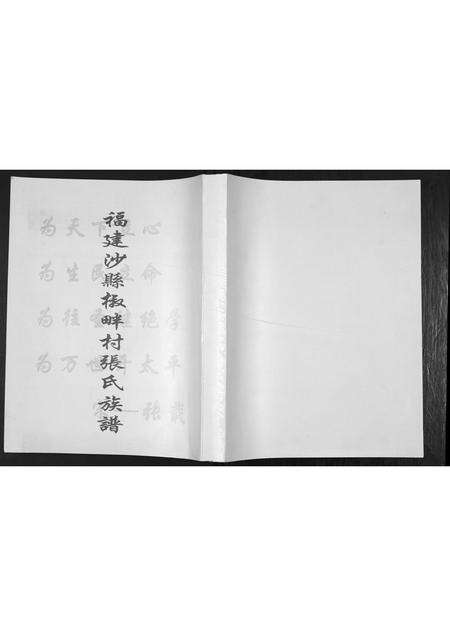 福建沙縣椒畔村張氏族譜
为天下立心
为生民立命
为往圣继绝学
为万世开太平
张载